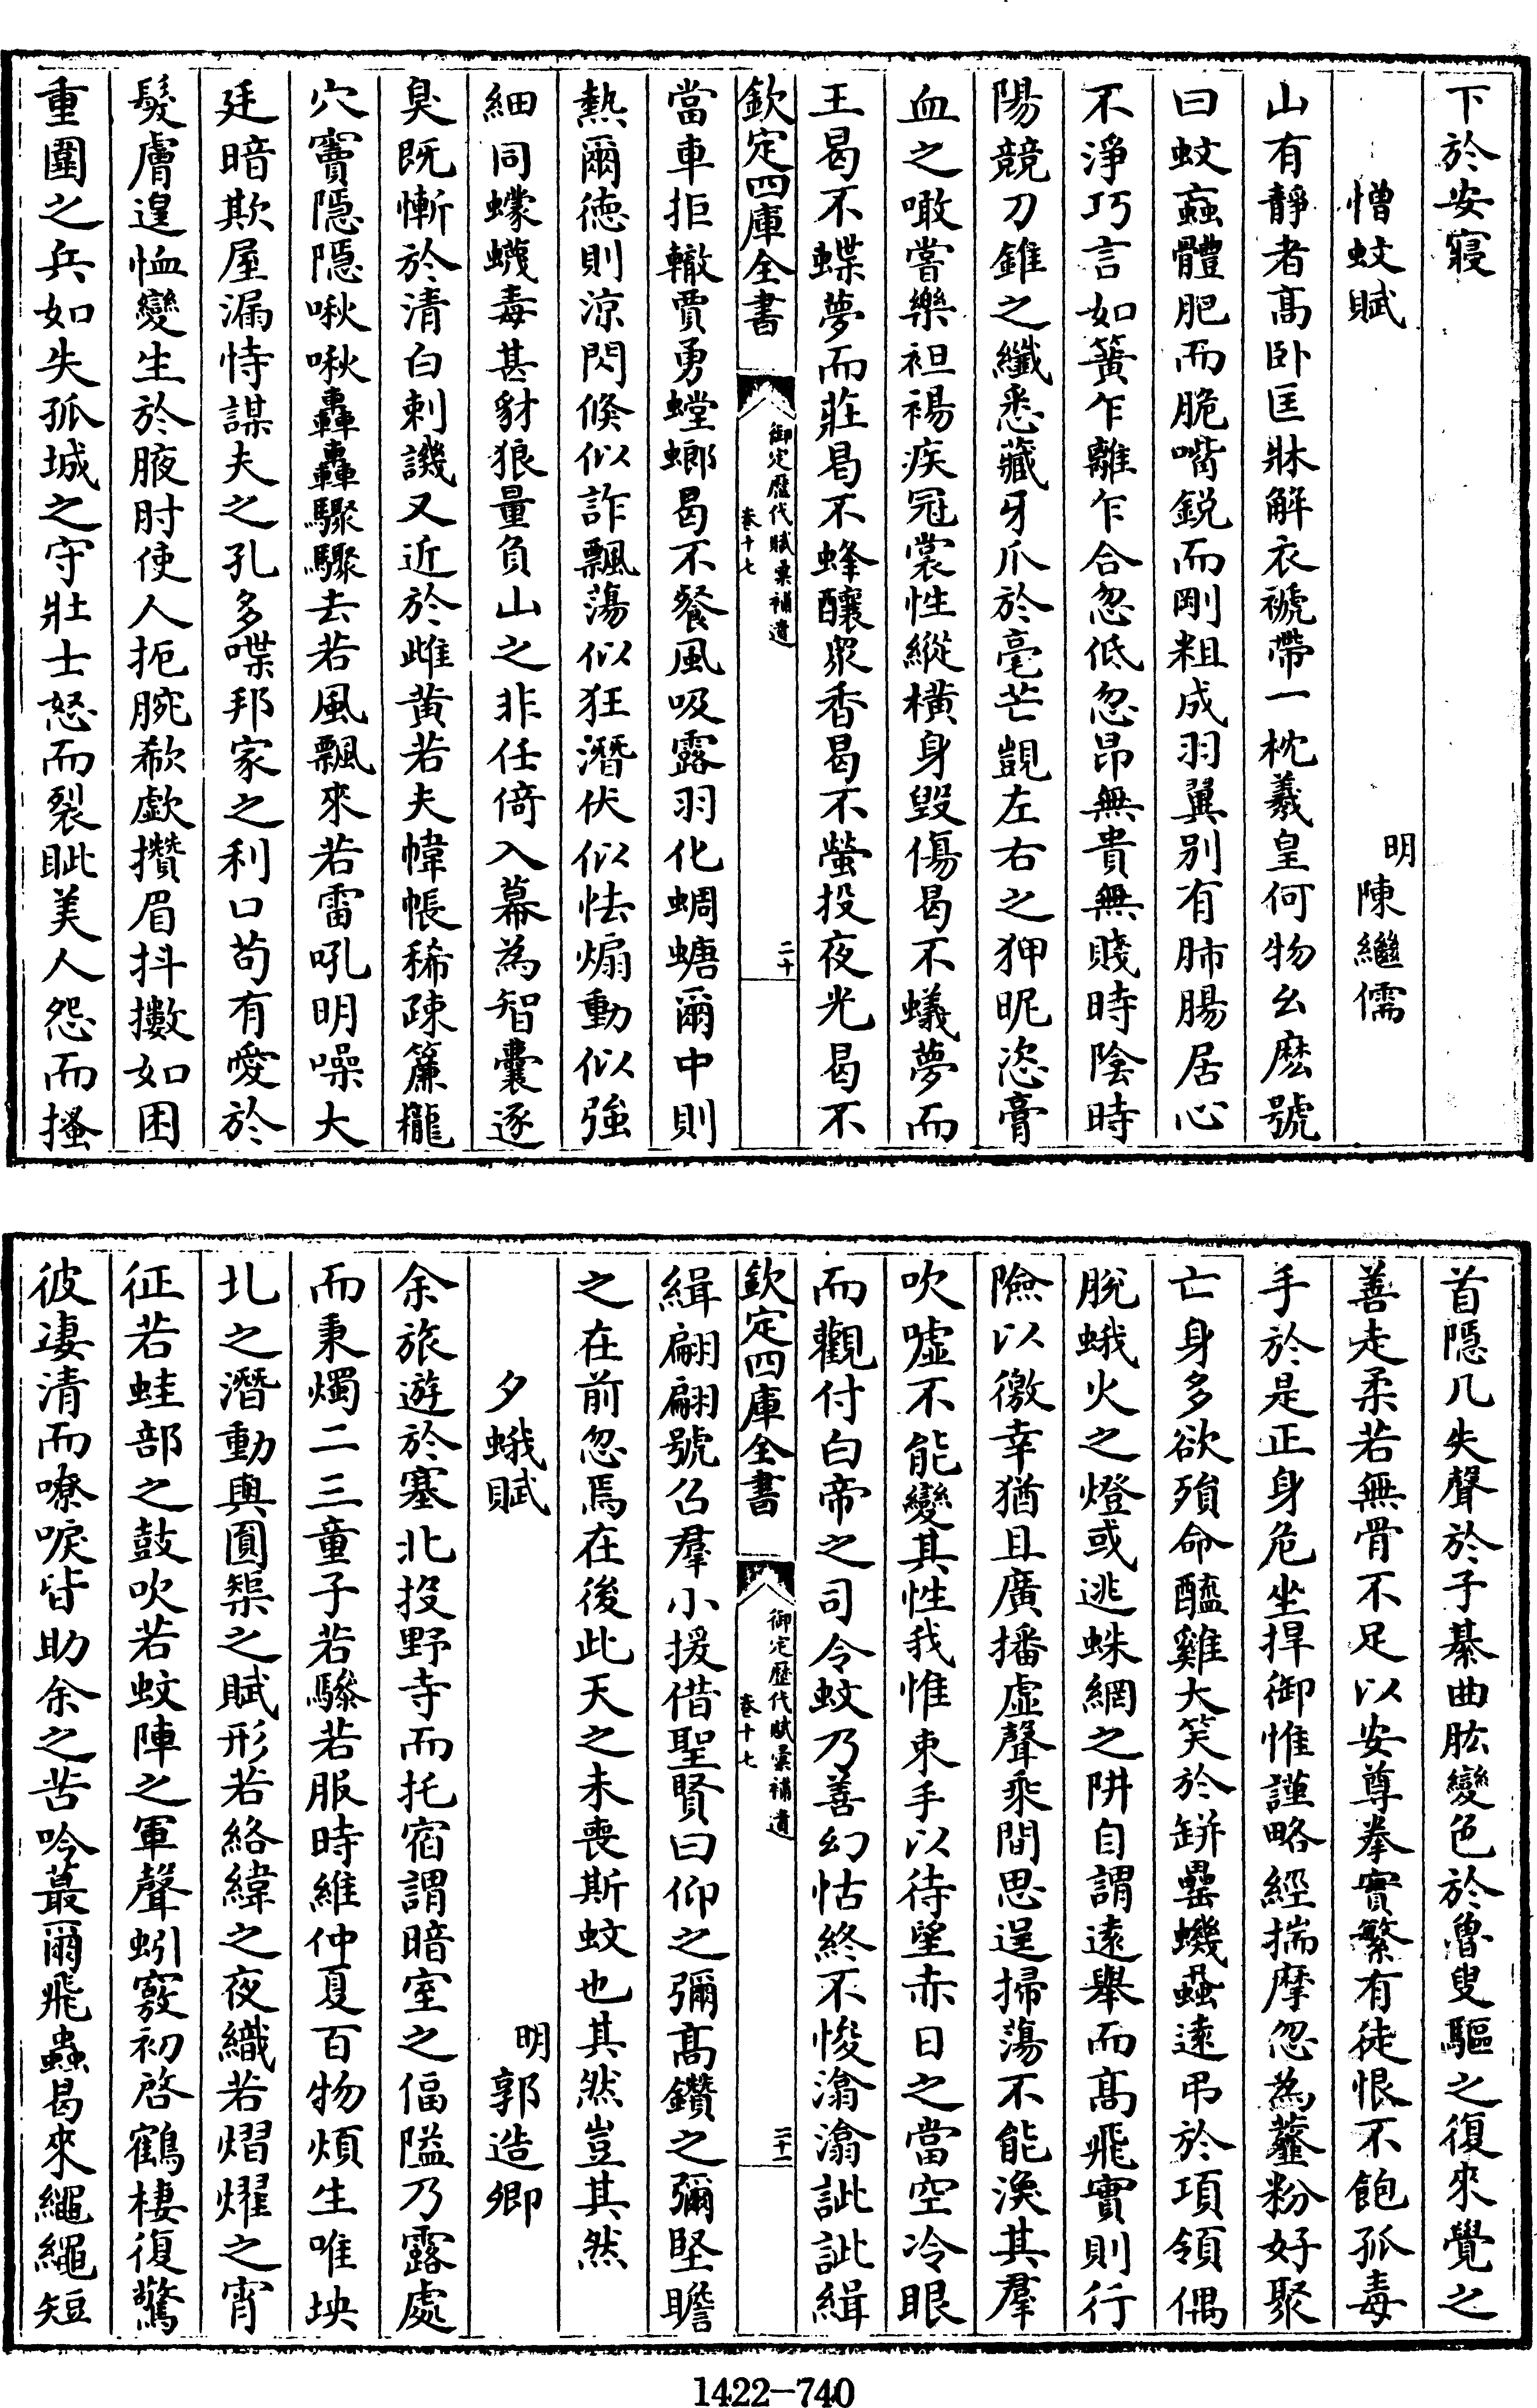 下於安寢
憎蚊賦
明陳繼儒
山有靜者高卧匡牀解衣褫帶一枕羲皇何物幺麽號
曰蚊蝱體肥而脆嘴銳而剛粗成羽翼别有肺腸居心
不淨巧言如簧乍離乍合忽低忽昂無貴無賤時陰時
陽競刀錐之纖悉藏牙爪於毫芒覬左右之狎昵恣膏
血之噉嘗樂袒裼疾冠裳性縱橫身毀傷曷不蟻夢而
王曷不蝶夢而莊曷不蜂釀衆香曷不螢投夜光曷不
欽定四庫全書
御定歷代賦彙補遺
卷十七
二十
當車拒轍賈勇螳螂曷不餐風吸露羽化蜩螗爾中則
熱爾德則涼閃倐似詐飄蕩似狂潛伏似怯煽動似強
細同蠓蠛毒甚豺狼量負山之非任倚入幕為智囊逐
臭既慚於清白刺譏又近於雌黄若夫幃帳稀疎簾櫳
穴竇隱隱啾啾轟轟驟驟去若風飄來若雷吼明噪大
廷暗欺屋漏恃謀夫之孔多喋邦家之利口苟有愛於
髮膚遑恤變生於腋肘使人扼腕欷歔攢眉抖擻如困
重圍之兵如失孤城之守壯士怒而裂眦美人怨而搔
首隱几失聲於子綦曲肱變色於魯叟驅之復來覺之
善走柔若無骨不足以安尊拳實繁有徒恨不飽孤毒
手於是正身危坐捍御惟謹略經揣摩忽為虀粉好聚
亡身多欲殞命醯雞大笑於缾罍蟣蝨遠弔於項領偶
脫蛾火之燈或逃蛛網之阱自謂遠舉而高飛實則行
險以徼幸猶且廣播虛聲乘間思逞掃蕩不能渙其羣
吹噓不能變其性我惟束手以待望赤日之當空冷眼
而觀付白帝之司令蚊乃善幻怙終不悛潝潝訿訿緝
欽定四庫全書
御定歷代賦彙補遺
卷十七
二十一
緝翩翩號召羣小援借聖賢曰仰之彌高鑽之彌堅瞻
之在前忽焉在後此天之未喪斯蚊也其然豈其然
夕蛾賦
明郭造卿
余旅遊於塞北投野寺而托宿謂暗室之偪隘乃露處
而秉燭二三童子若驂若服時維仲夏百物煩生唯坱
北之潛動與圓槩之賦形若絡緯之夜織若熠燿之宵
征若蛙部之鼓吹若蚊陣之軍聲蚓竅初啓鶴棲復驚
彼凄清而嘹唳皆助余之苦吟蕞爾飛蟲曷來繩繩短
1422-740